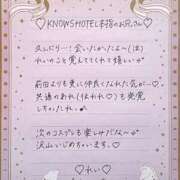 ♡KNOWSHOTEL本指のお兄さん♡
久しぶり〜！会いたかったよ〜(泣)
れいのこと覚えてくれてて嬉しい♡
前回よりも更に仲良くなれた気が…♡
共通のあれ(🤫それ♡)も発覚
しちゃったれぃ♪
次のコスプレも楽しみだな〜♡
沢山いじめちゃいます。♡
♡れい♡